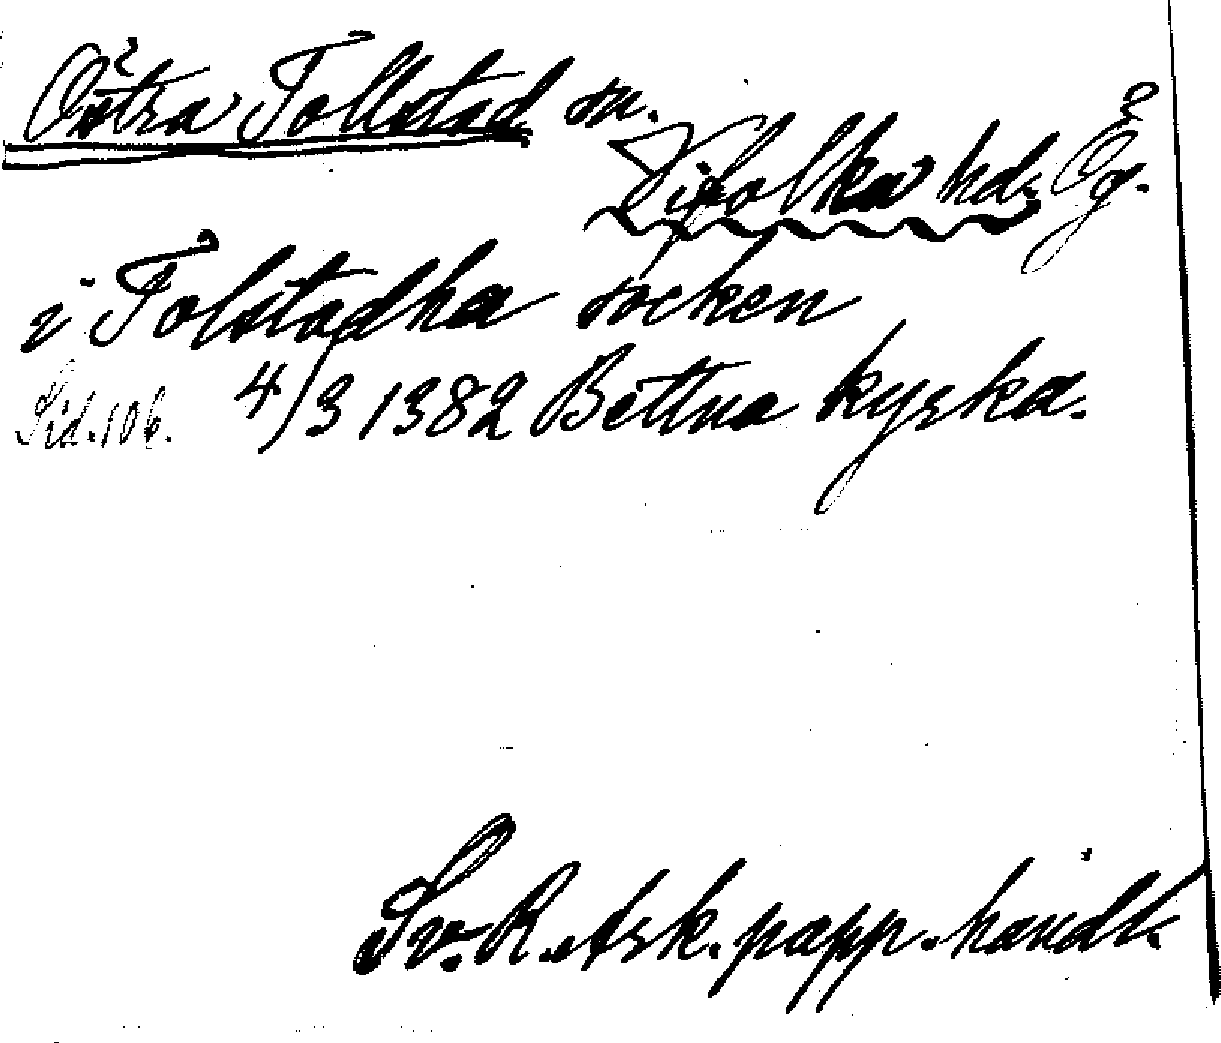 Östra Tollstad sn.
Vifolka hd. Ög.
i Tolstadha socken
Sid. 106. 4/3 1382 Bettna kyrka.
Sv. R. Ark. papp. handl.